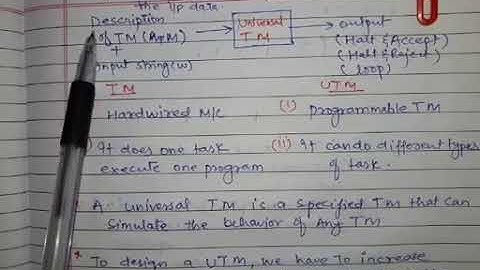 the i/p data.
Description
of TM (ATM) → Universal TM → output
+
input string(w)
(Halt & Accept)
(Halt & Reject)
(Loop)
TM UTM
Hardwired M/c (i) programmable TM
It does one task (ii) It can do different types
execute one program of task.
A universal TM is a specified TM that can
simulate the behavior of Any TM
* To design a UTM, we have to increase